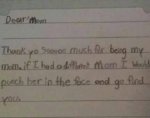 Dear Mom
Thank yo Sooooo much for being my
mom, if I had a different Mom I would
punch her in the face and go find
you.